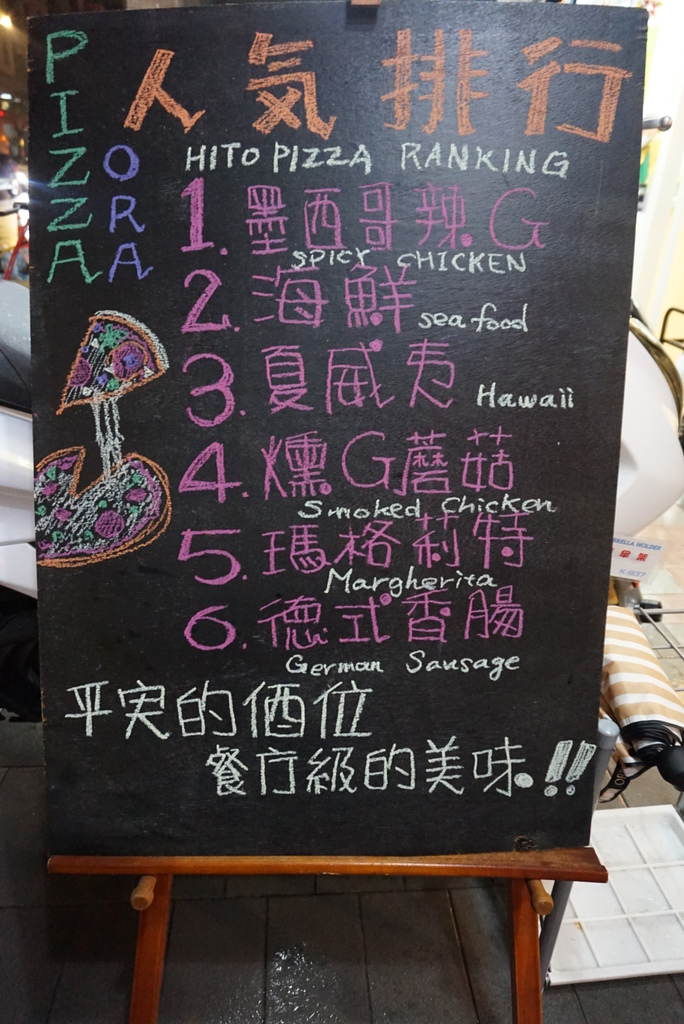 PIZZA
ORA
人気排行
HITO PIZZA RANKING
1. 墨西哥辣G
SPICY CHICKEN
2. 海鮮 seafood
3. 夏威夷 Hawaii
4. 燻G蘑菇
Smoked Chicken
5. 瑪格莉特
Margherita
6. 德式香腸
German Sausage
平实的価位
餐厅級的美味!!
BRELLA HOLDER
傘架